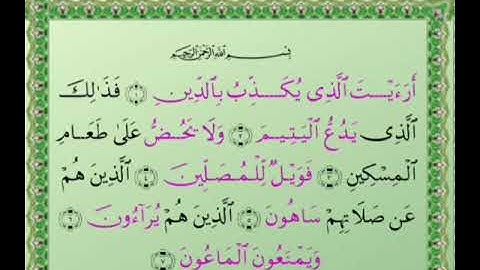 بِسْمِ ٱللَّهِ ٱلرَّحْمَٰنِ ٱلرَّحِيمِ
أَرَءَيْتَ ٱلَّذِى يُكَذِّبُ بِٱلدِّينِ ١ فَذَٰلِكَ
ٱلَّذِى يَدُعُّ ٱلْيَتِيمَ ٢ وَلَا يَحُضُّ عَلَىٰ طَعَامِ
ٱلْمِسْكِينِ ٣ فَوَيْلٌ لِّلْمُصَلِّينَ ٤ ٱلَّذِينَ هُمْ
عَن صَلَاتِهِمْ سَاهُونَ ٥ ٱلَّذِينَ هُمْ يُرَآءُونَ ٦
وَيَمْنَعُونَ ٱلْمَاعُونَ ٧